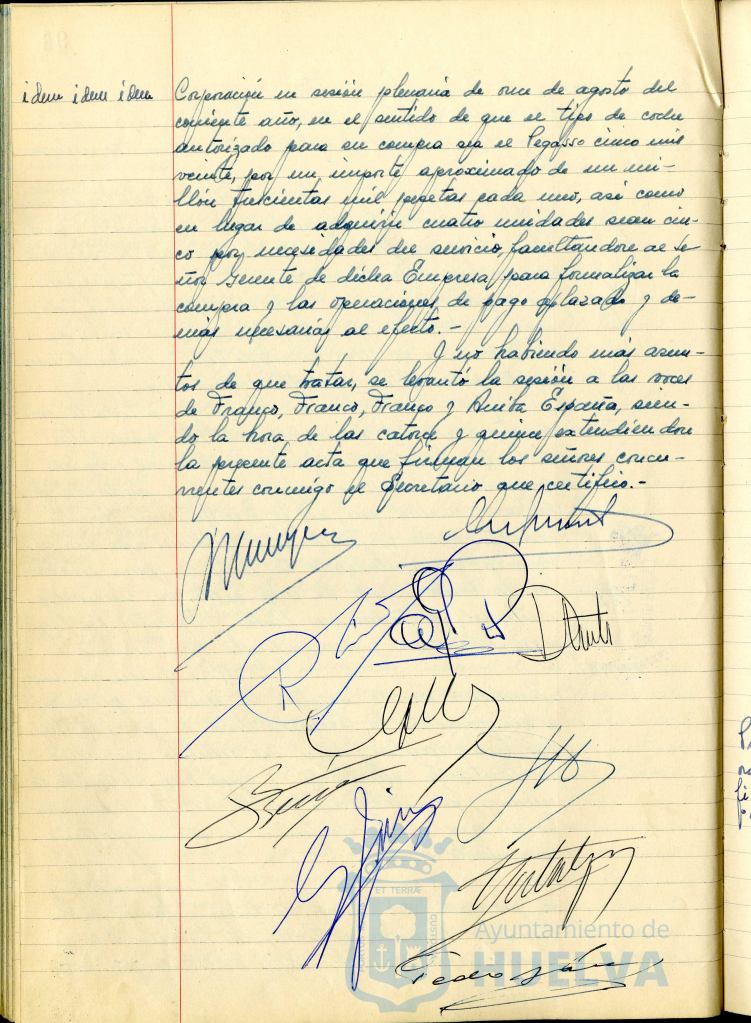 idem idem idem
Corporación en sesión plenaria de once de agosto del
corriente año, en el sentido de que el tipo de coche
autorizado para su compra sea el Pegasso cinco mil
veinte, por un importe aproximado de un mi-
llón trescientas mil pesetas cada uno, así como
en lugar de adquirir cuatro unidades sean cin-
co por necesidades del servicio, facultandose al Se-
ñor Gerente de dicha Empresa para formalizar la
compra y las operaciones de pago aplazado y de-
más necesarias al efecto.-
Y no habiendo más asun-
tos de que tratar, se levantó la sesión a las voces
de Franco, Franco, Franco y Arriba España, sien-
do la hora de las catorce y quince, extendiendose
la presente acta que firman los señores concu-
rrentes conmigo el Secretario que certifico.-
ET TERRÆ
Ayuntamiento de
HUELVA
Pedro